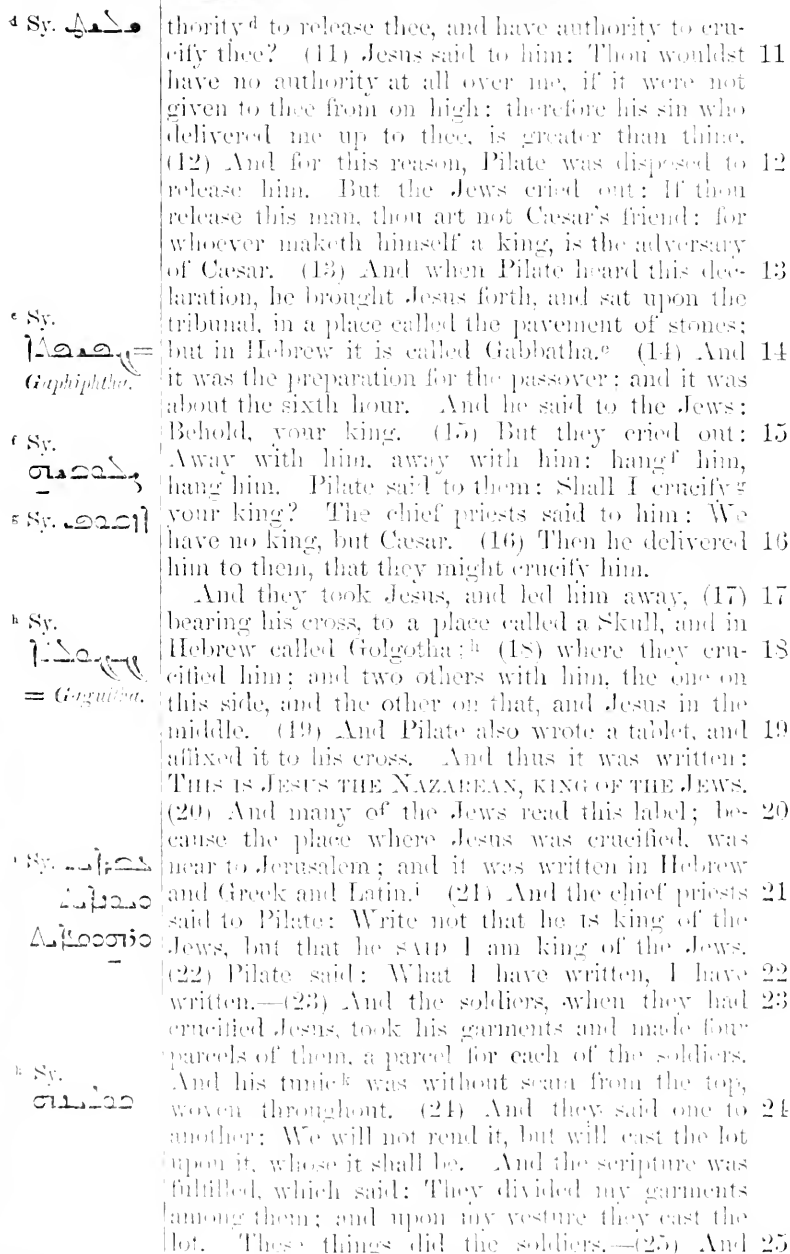 thority ᵈ to release thee, and have authority to cru-
cify thee? (11) Jesus said to him: Thou wouldst 11
have no authority at all over me, if it were not
given to thee from on high: therefore his sin who
delivered me up to thee, is greater than thine.
(12) And for this reason, Pilate was disposed to 12
release him. But the Jews cried out: If thou
release this man, thou art not Cæsar's friend: for
whoever maketh himself a king, is the adversary
of Cæsar. (13) And when Pilate heard this dec- 13
laration, he brought Jesus forth, and sat upon the
tribunal, in a place called the pavement of stones;
but in Hebrew it is called Gabbatha.ᵉ (14) And 14
it was the preparation for the passover: and it was
about the sixth hour. And he said to the Jews:
Behold, your king. (15) But they cried out: 15
Away with him, away with him: hang ᶠ him,
hang him. Pilate said to them: Shall I crucify ᵍ
your king? The chief priests said to him: We
have no king, but Cæsar. (16) Then he delivered 16
him to them, that they might crucify him.
And they took Jesus, and led him away, (17) 17
bearing his cross, to a place called a Skull, and in
Hebrew called Golgotha; ʰ (18) where they cru- 18
cified him; and two others with him, the one on
this side, and the other on that, and Jesus in the
middle. (19) And Pilate also wrote a tablet, and 19
affixed it to his cross. And thus it was written:
THIS IS JESUS THE NAZAREAN, KING OF THE JEWS.
(20) And many of the Jews read this label; be- 20
cause the place where Jesus was crucified, was
near to Jerusalem; and it was written in Hebrew
and Greek and Latin.ⁱ (21) And the chief priests 21
said to Pilate: Write not that he IS king of the
Jews, but that he SAID I am king of the Jews.
(22) Pilate said: What I have written, I have 22
written.—(23) And the soldiers, when they had 23
crucified Jesus, took his garments and made four
parcels of them, a parcel for each of the soldiers.
And his tunic ᵏ was without seam from the top,
woven throughout. (24) And they said one to 24
another: We will not rend it, but will cast the lot
upon it, whose it shall be. And the scripture was
fulfilled, which said: They divided my garments
among them; and upon my vesture they cast the
lot. These things did the soldiers.—(25) And 25
ᵈ Sy.
ᵉ Sy.
ܓܦܝܦܬܐ =
Gaphiphtha.
ᶠ Sy.
ᵍ Sy.
ʰ Sy.
ܓܓܘܠܬܐ
= Gagultha.
ⁱ Sy. ܥܒܪܐܝܬ
ܘܝܘܢܐܝܬ
ܘܪܗܘܡܐܝܬ
ᵏ Sy.
ܟܘܬܝܢܗ